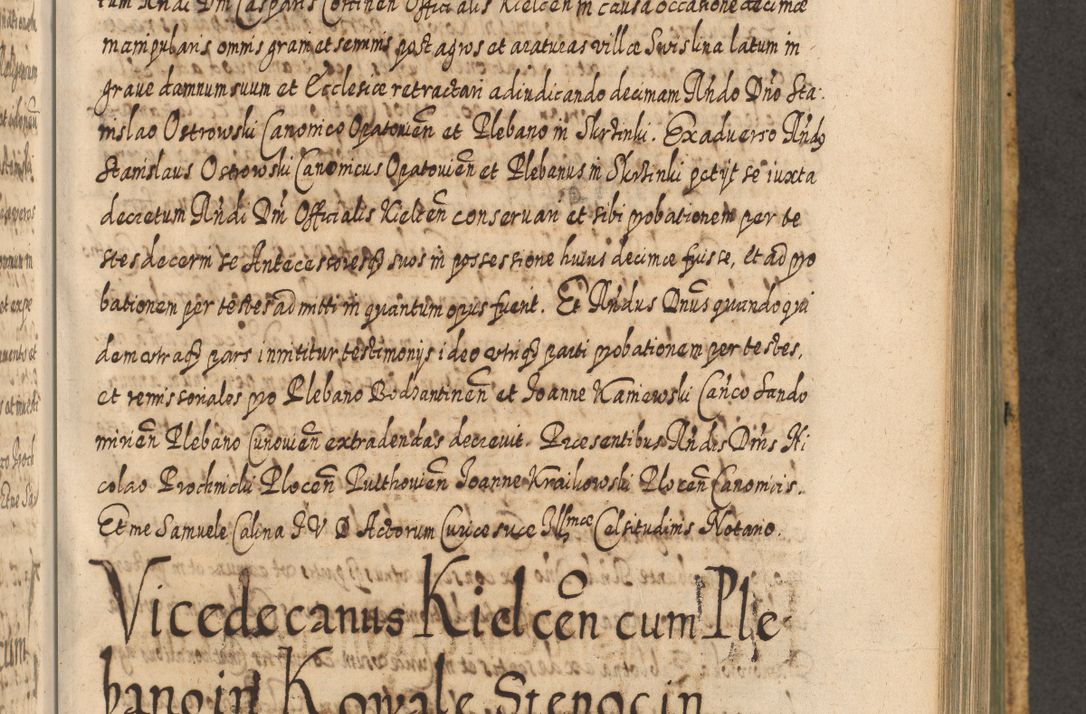 tum Andi Dni Casparis Corticen Officialis Kielcen in causa occasione decimæ
manipularis omnis gram et seminis post agros et araturas villæ Swislina latum in
graue damnum suum et Ecclesiæ retractari adiudicando decimam Rndo Dno Sta
nislao Ostrowski Canonico Opatouien et Plebano in Skrzinki. Exaduerso Rnds
Stanislaus Ostrowski Canonicus Opatouien et Plebanus in Skrzinki petijt se iuxta
decretum Rndi Dni Officialis Kielcen conseruari et sibi probationem per te
stes decerni se Antecessoresq suos in possessione huius decimæ fuisse, et ad pro
bationem per testes admitti in quantum opus fuerit. Et Rndus Dnus quandoqui
dem utraq pars innititur testimonijs ideo utriq parti probationem per testes,
et remissoriales pro Plebano Bodzantinen et Joanne Kaniewski Canco Sando
mirien Plebano Cunouien extradendas decreuit. Præsentibus Rndis Dnis Ni
colao Prochnicki Plocen Pulthouien Joanne Kraikowski Plocen Canonicis.
Et me Samuele Calina I V D Actorum Curiæ suæ Illmæ Celsitudinis Notario.
Vicedecanus Kielcen cum Ple
bano in Kowale Stenocin